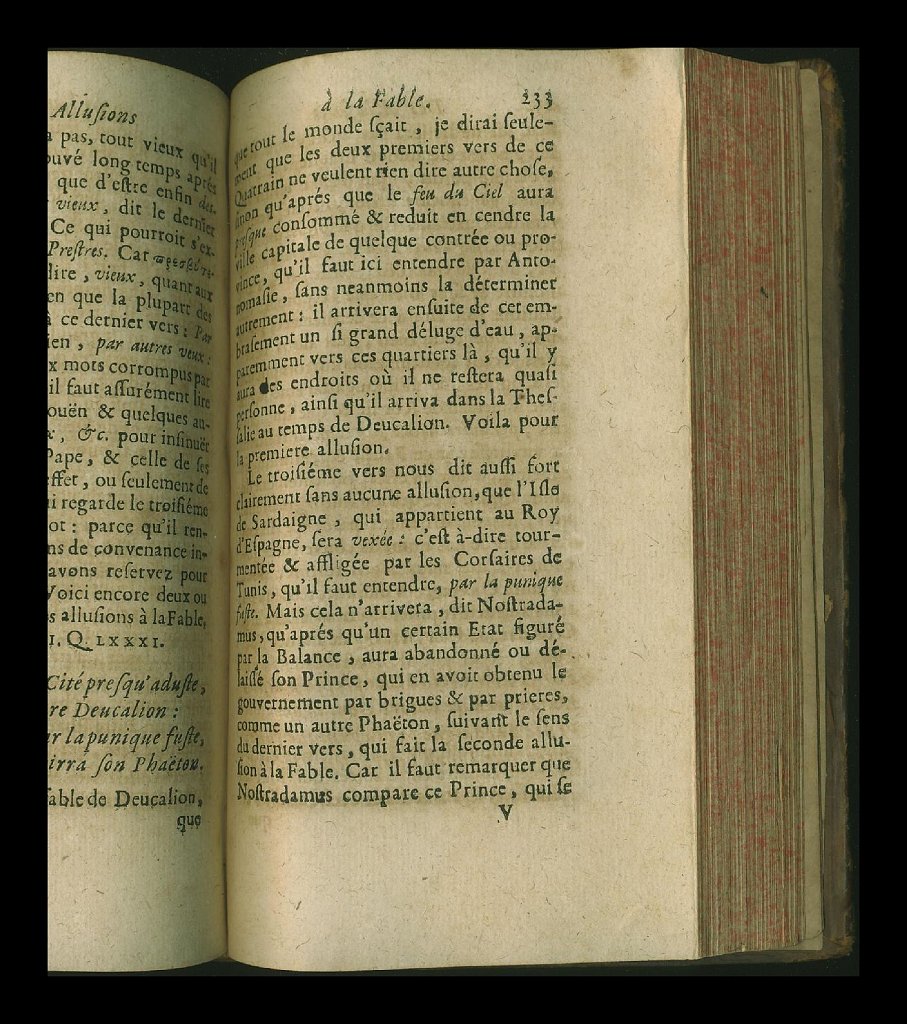 Allusions
pas, tout vieux qu'il
long temps aprés
que d'estre enfin
vieux, dit le dernier
Ce qui pourroit s'ex-
Prestres. Car
dire, vieux, quant aux
en que la plupart des
à ce dernier vers: Par
ien, par autres veux:
x mots corrompus par
il faut assurément lire
ouën & quelques au-
x, &c. pour insinuër
Pape, & celle de ses
effet, ou seulement de
ui regarde le troisiéme
ot: parce qu'il ren-
ns de convenance in-
avons reservez pour
Voici encore deux ou
s allusions à la Fable,
I. Q. LXXXI.
Cité presqu'aduste,
re Deucalion:
ar la punique fuste,
irra son Phaëton.
able de Deucalion,
que
à la Fable. 233
que tout le monde sçait, je dirai seule-
ment que les deux premiers vers de ce
Quatrain ne veulent rien dire autre chose,
sinon qu'aprés que le feu du Ciel aura
presque consommé & reduit en cendre la
ville capitale de quelque contrée ou pro-
vince, qu'il faut ici entendre par Anto-
nomasie, sans neanmoins la déterminer
autrement: il arrivera ensuite de cet em-
brasement un si grand déluge d'eau, ap-
paremment vers ces quartiers là, qu'il y
aura des endroits où il ne restera quasi
personne, ainsi qu'il arriva dans la Thes-
salie au temps de Deucalion. Voila pour
la premiere allusion.
Le troisiéme vers nous dit aussi fort
clairement sans aucune allusion, que l'Isle
de Sardaigne, qui appartient au Roy
d'Espagne, sera vexée: c'est à-dire tour-
mentée & affligée par les Corsaires de
Tunis, qu'il faut entendre, par la punique
fuste. Mais cela n'arrivera, dit Nostrada-
mus, qu'aprés qu'un certain Etat figuré
par la Balance, aura abandonné ou dé-
laissé son Prince, qui en avoit obtenu le
gouvernement par brigues & par prieres,
comme un autre Phaëton, suivant le sens
du dernier vers, qui fait la seconde allu-
sion à la Fable. Car il faut remarquer que
Nostradamus compare ce Prince, qui se
V